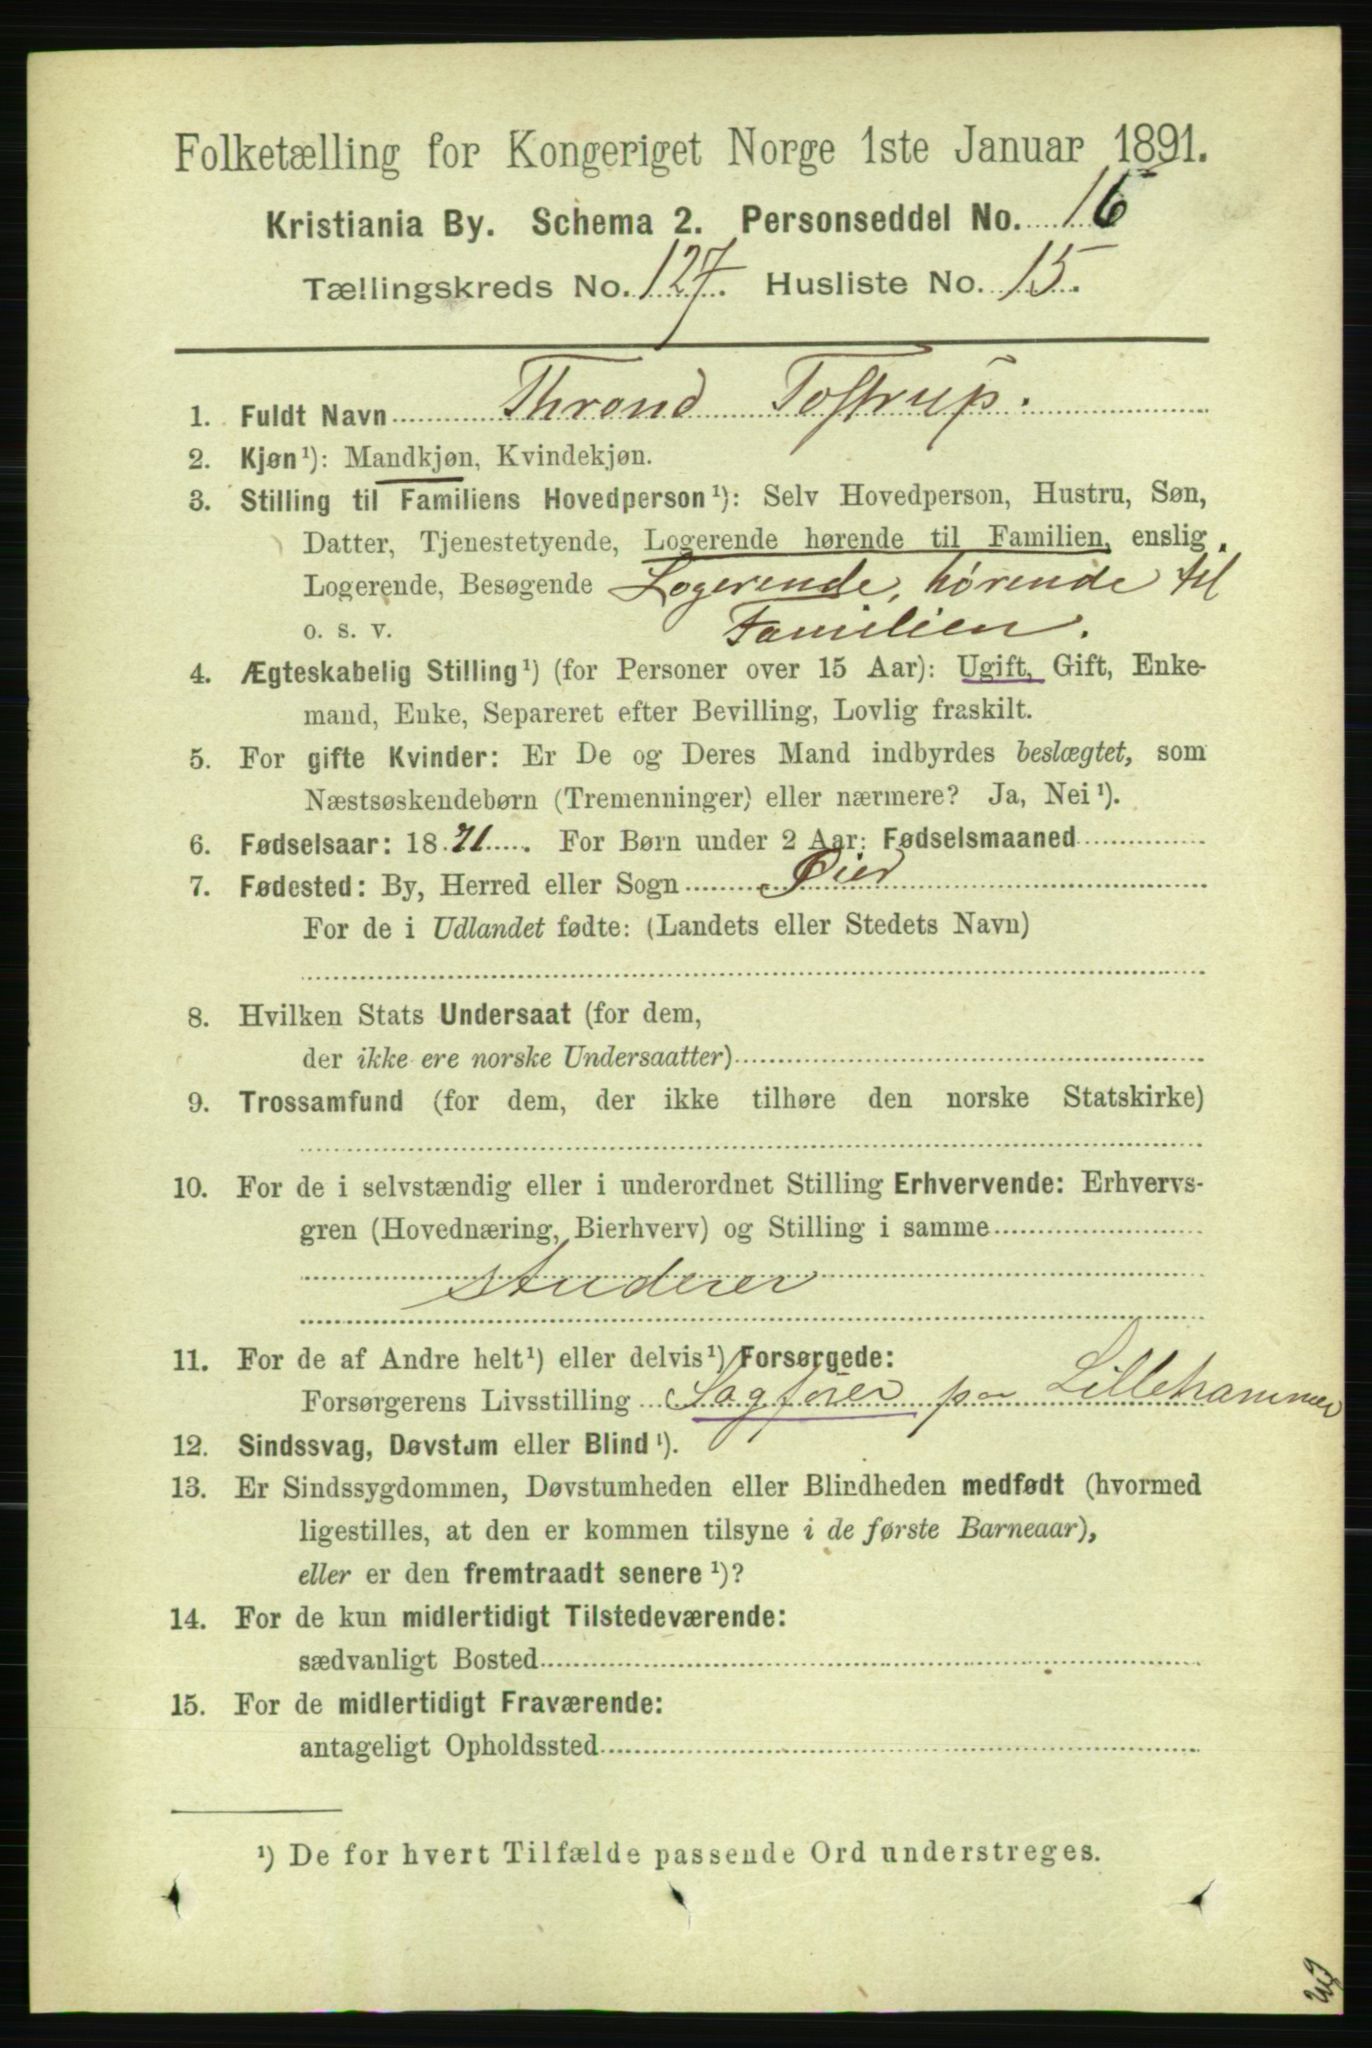 Folketælling for Kongeriget Norge 1ste Januar 1891.
Kristiania By. Schema 2. Personseddel No. 16
Tællingskreds No. 127. Husliste No. 15.
1. Fuldt Navn Thrond Tostrup.
2. Kjøn¹): Mandkjøn, Kvindekjøn.
3. Stilling til Familiens Hovedperson¹): Selv Hovedperson, Hustru, Søn,
Datter, Tjenestetyende, Logerende hørende til Familien, enslig
Logerende, Besøgende Logerende, hørende til
o. s. v. Familien.
4. Ægteskabelig Stilling¹) (for Personer over 15 Aar): Ugift, Gift, Enke-
mand, Enke, Separeret efter Bevilling, Lovlig fraskilt.
5. For gifte Kvinder: Er De og Deres Mand indbyrdes beslægtet, som
Næstsøskendebørn (Tremenninger) eller nærmere? Ja, Nei¹).
6. Fødselsaar: 1871. For Børn under 2 Aar: Fødselsmaaned
7. Fødested: By, Herred eller Sogn Øier
For de i Udlandet fødte: (Landets eller Stedets Navn)
8. Hvilken Stats Undersaat (for dem,
der ikke ere norske Undersaatter)
9. Trossamfund (for dem, der ikke tilhøre den norske Statskirke)
10. For de i selvstændig eller i underordnet Stilling Erhvervende: Erhvervs-
gren (Hovednæring, Bierhverv) og Stilling i samme
studerer
11. For de af Andre helt¹) eller delvis¹) Forsørgede:
Forsørgerens Livsstilling Sagfører paa Lillehammer
12. Sindssvag, Døvstum eller Blind¹).
13. Er Sindssygdommen, Døvstumheden eller Blindheden medfødt (hvormed
ligestilles, at den er kommen tilsyne i de første Barneaar),
eller er den fremtraadt senere¹)?
14. For de kun midlertidigt Tilstedeværende:
sædvanligt Bosted
15. For de midlertidigt Fraværende:
antageligt Opholdssted
¹) De for hvert Tilfælde passende Ord understreges.